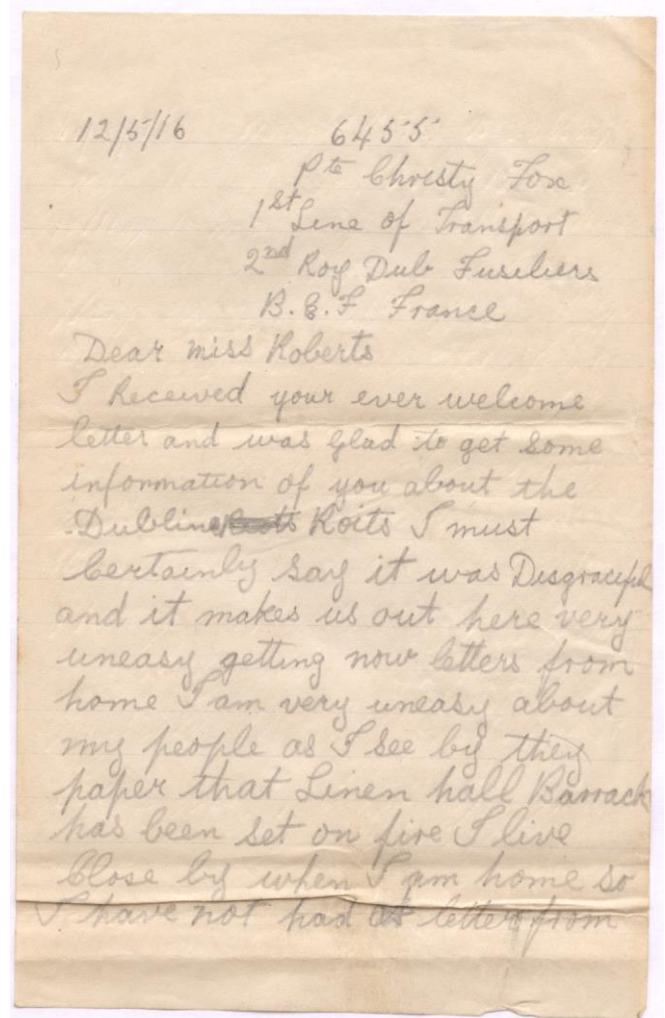 12/5/16 6455
Pte Christy Fox
1st Line of Transport
2nd Roy Dub Fusiliers
B.E.F France
Dear Miss Roberts
I Received your ever welcome
letter and was glad to get some
information of you about the
Dublin Roits I must
Certainly say it was Disgraceful
and it makes us out here very
uneasy getting now letters from
home I am very uneasy about
my people as I see by they
paper that Linen hall Barrack
has been set on fire I live
Close by when I am home so
I have not had letter from